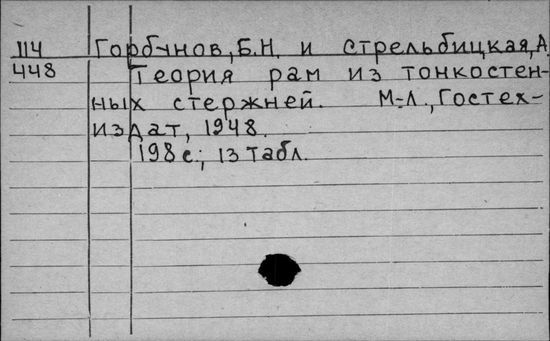 114 Горбунов, Б.Н. и стрельбицкая, А
448 Теория рам из тонкостен-
ных стержней. М-Л., Гостех-
издат, 1948.
198 с.; 13 табл.